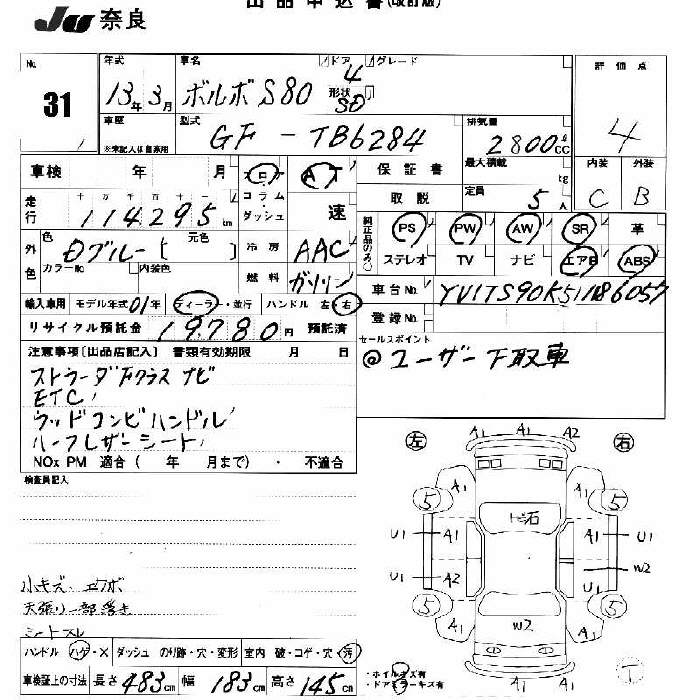 出品申込書(改訂版)
JU 奈良
No. 31
年式 13年3月
車名 ボルボS80
ドア 4
形状 SD
グレード
評価点 4
車歴
※未記入は自家用
型式 GF-TB6284
排気量 2800cc
内装 C 外装 B
車検 年 月
フロア AT
保証書
最大積載 kg
走行 十万千百十一 114295km
コラム・ダッシュ 速
取説
定員 5人
外色 色 Dブルー 元色
冷房 AAC
純正品のみ○ PS PW AW SR 革
カラーNo 内装色
燃料 ガソリン
ステレオ TV ナビ エアB ABS
輸入車用 モデル年式01年 ディーラー・並行 ハンドル 左・右
車台No. YV1TS90K511186057
リサイクル預託金 19,780円 預託済
登録No.
注意事項[出品店記入] 書類有効期限 月 日
セールスポイント
@ユーザー下取車
ストラーダFクラス ナビ
ETC
ウッドコンビハンドル
ハーフレザーシート
NOx PM 適合( 年 月まで)・不適合
検査員記入
左 A1 A1 A2 右
5 A1 A1 5
U1 A1 ト石 A1 U1
U1 A2 W2
5 A1 W2 A1 5
小キズ・エクボ
天張り一部浮き
シートスレ
ハンドル ハゲ・× ダッシュ のり跡・穴・変形 室内 破・コゲ・穴・汚
車検証上の寸法 長さ 483cm 幅 183cm 高さ 145cm
・ホイルキズ有
・ドアミラーキズ有